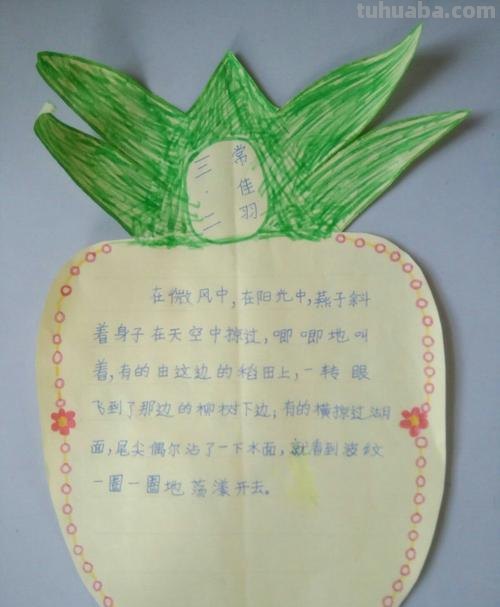 tuhuaba.com
常佳羽
三.二
在微风中,在阳光中,燕子斜
着身子在天空中掠过,唧唧地叫
着,有的由这边的稻田上,一转眼
飞到了那边的柳树下边;有的横掠过湖
面,尾尖偶尔沾了一下水面,就看到波纹
一圈一圈地荡漾开去。